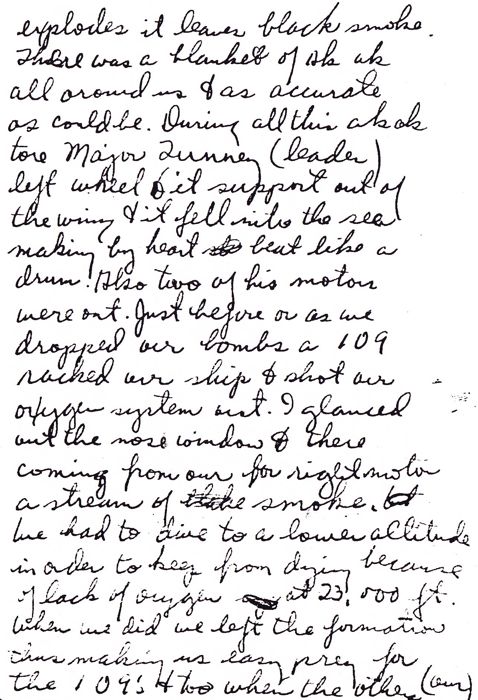 explodes it leaves black smoke.
There was a blanket of Ak ak
all around us & as accurate
as could be. During all this ak ak
tore Major Tunney (leader)
left wheel & it support out of
the wing & it fell into the sea
making by heart beat like a
drum. Also two of his motors
were out. Just before or as we
dropped our bombs a 109
racked our ship & shot our
oxygen system out. I glanced
out the nose window & there
coming from our far right motor
a stream of smoke.
We had to dive to a lower altitude
in order to keep from dying because
of lack of oxygen at 23,000 ft.
When we did we left the formation
thus making us easy prey for
the 109's & too when the others (our)